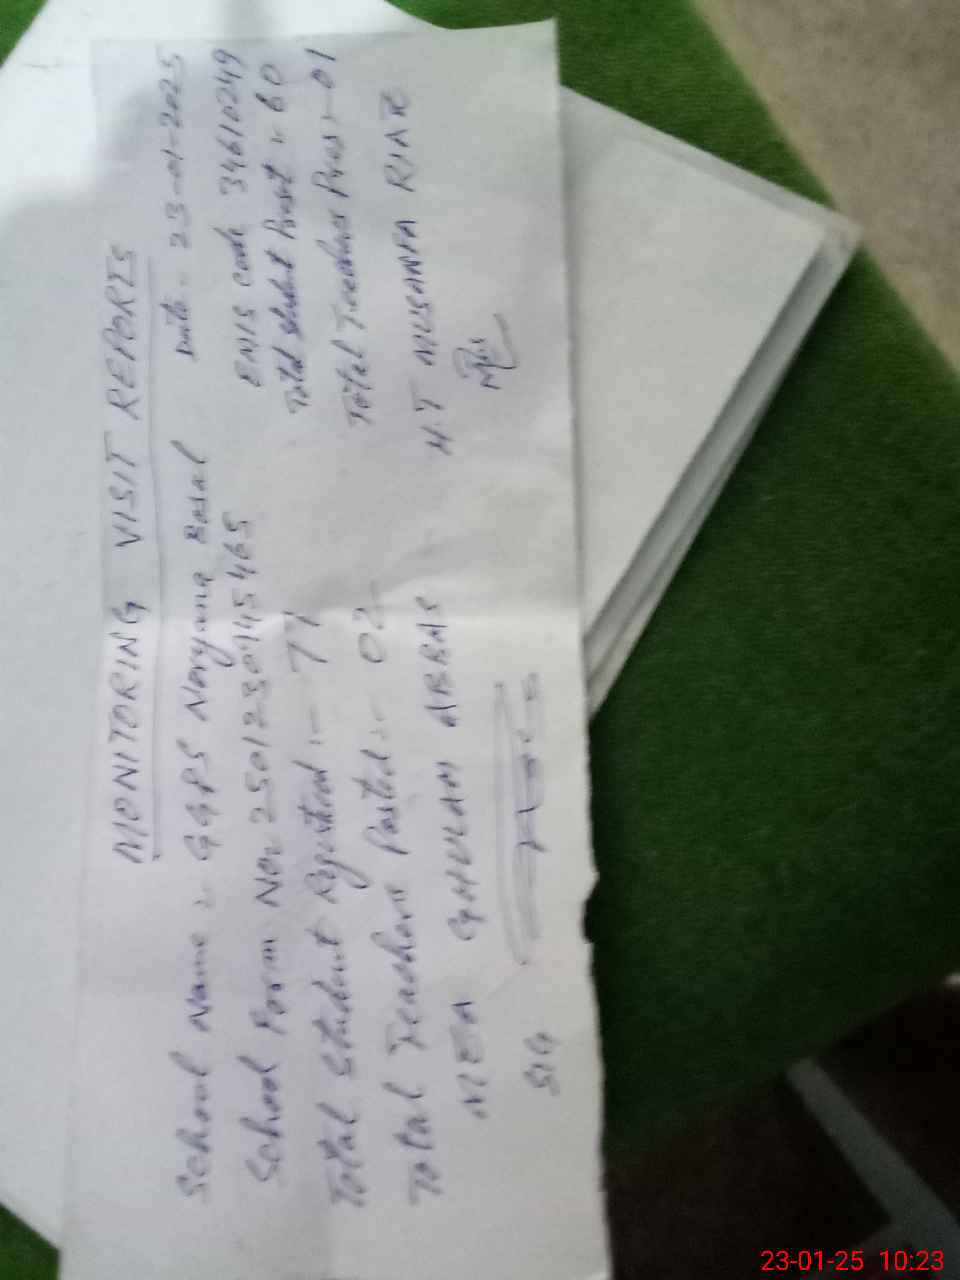 MONITORING VISIT REPORTS
School Name :- GGPS Naryang Basal Date :- 23-01-2025
School Form No:- 250123095465 EMIS code 34610249
Total Student Registered :- 71 Total Student Present :- 60
Total Teachers Posted :- 02 Total Teachers Pres :- 01
MEA GHULAM ABBAS H.T MUSARFA RIAZ
SIG
23-01-25 10:23